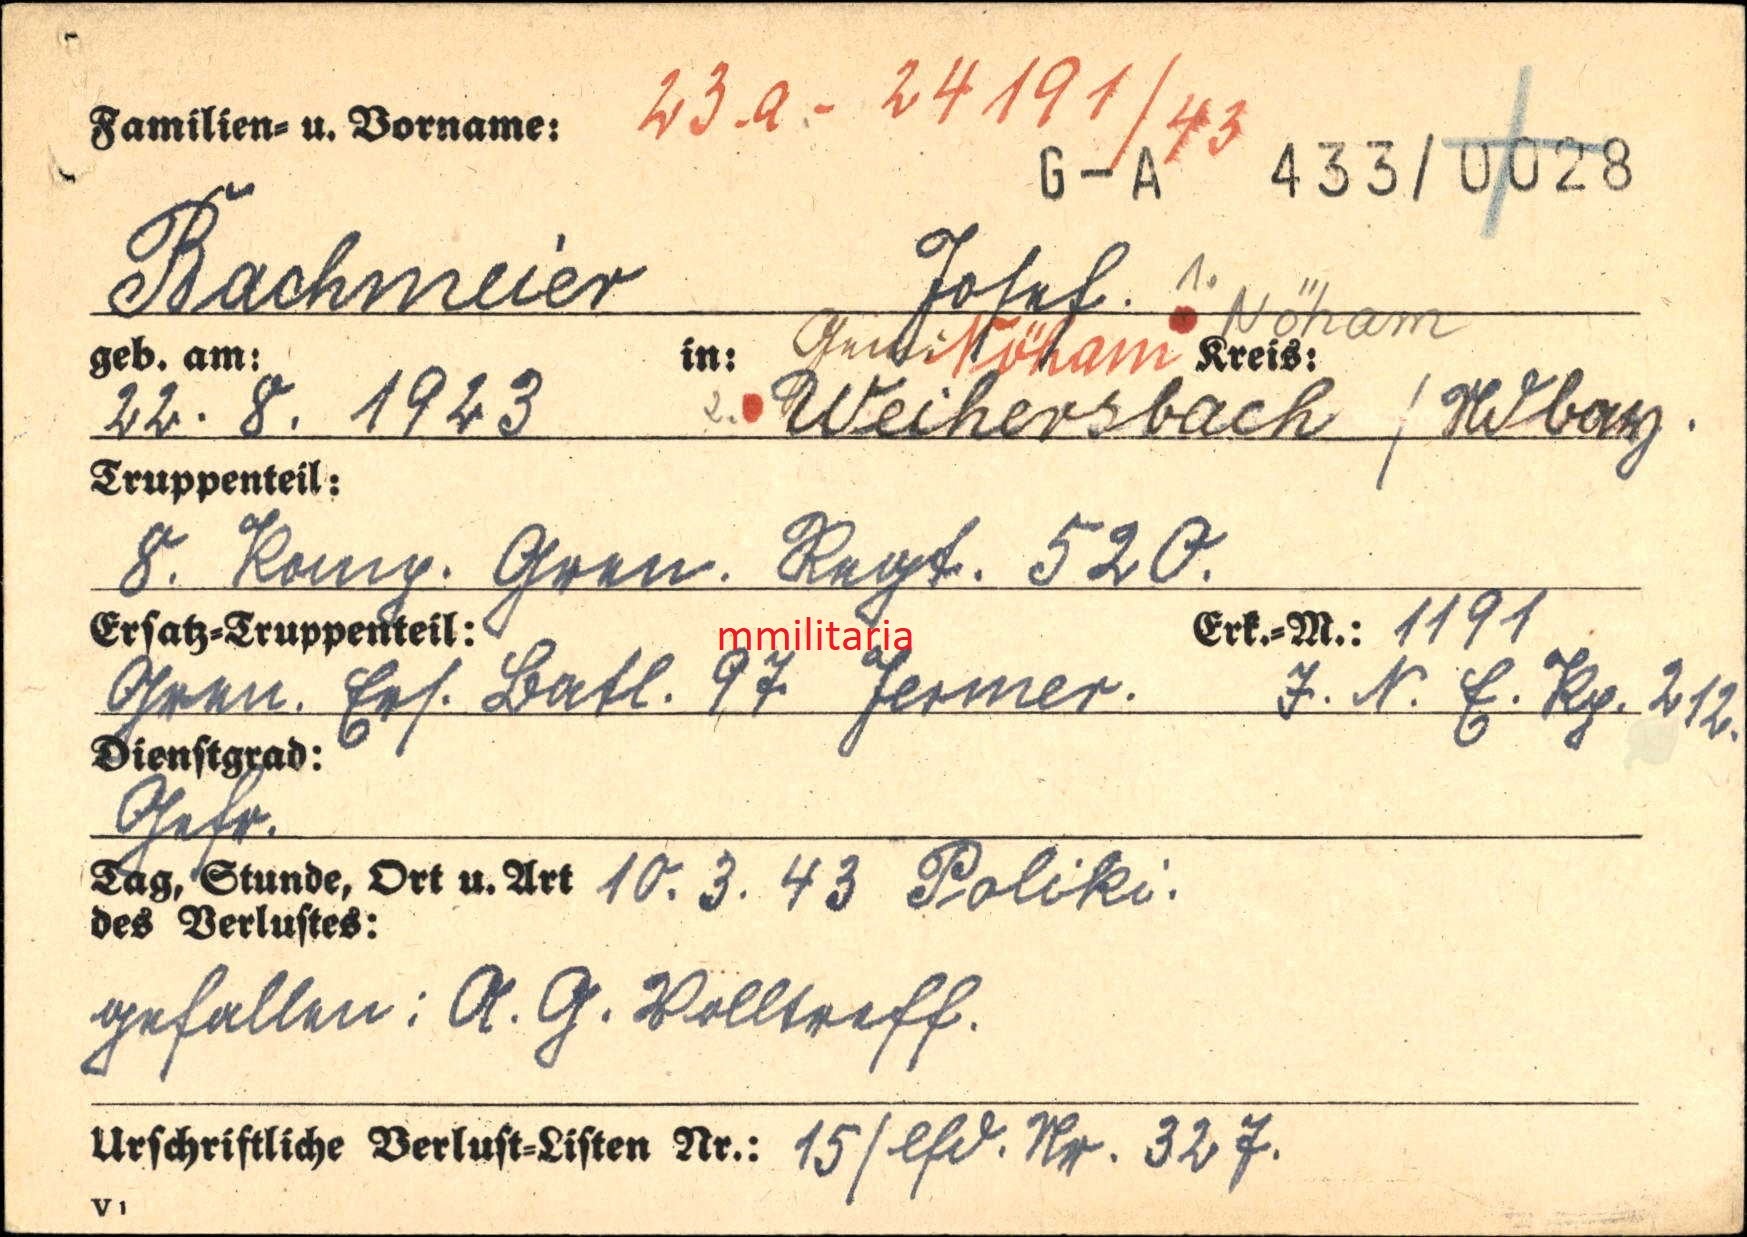 23.a.- 24191/43
Familien- u. Vorname:
G-A 433/0028
Bachmeier Josef. 1. Nöham
geb. am: in: Gem. Nöham Kreis:
22. 8. 1923 2. Weihersbach / Ndbay.
Truppenteil:
8. Komp. Gren. Regt. 520.
Ersatz-Truppenteil: mmilitaria Erk.-M.: 1191
Gren. Ers. Batl. 97 J. N. E. Kp. 212.
Dienstgrad:
Gefr.
Tag, Stunde, Ort u. Art 10. 3. 43 Poliki.
des Verlustes:
gefallen: A. G. Volltreff.
Urschriftliche Verlust-Listen Nr.: 15/lfd. Nr. 327.
V 1